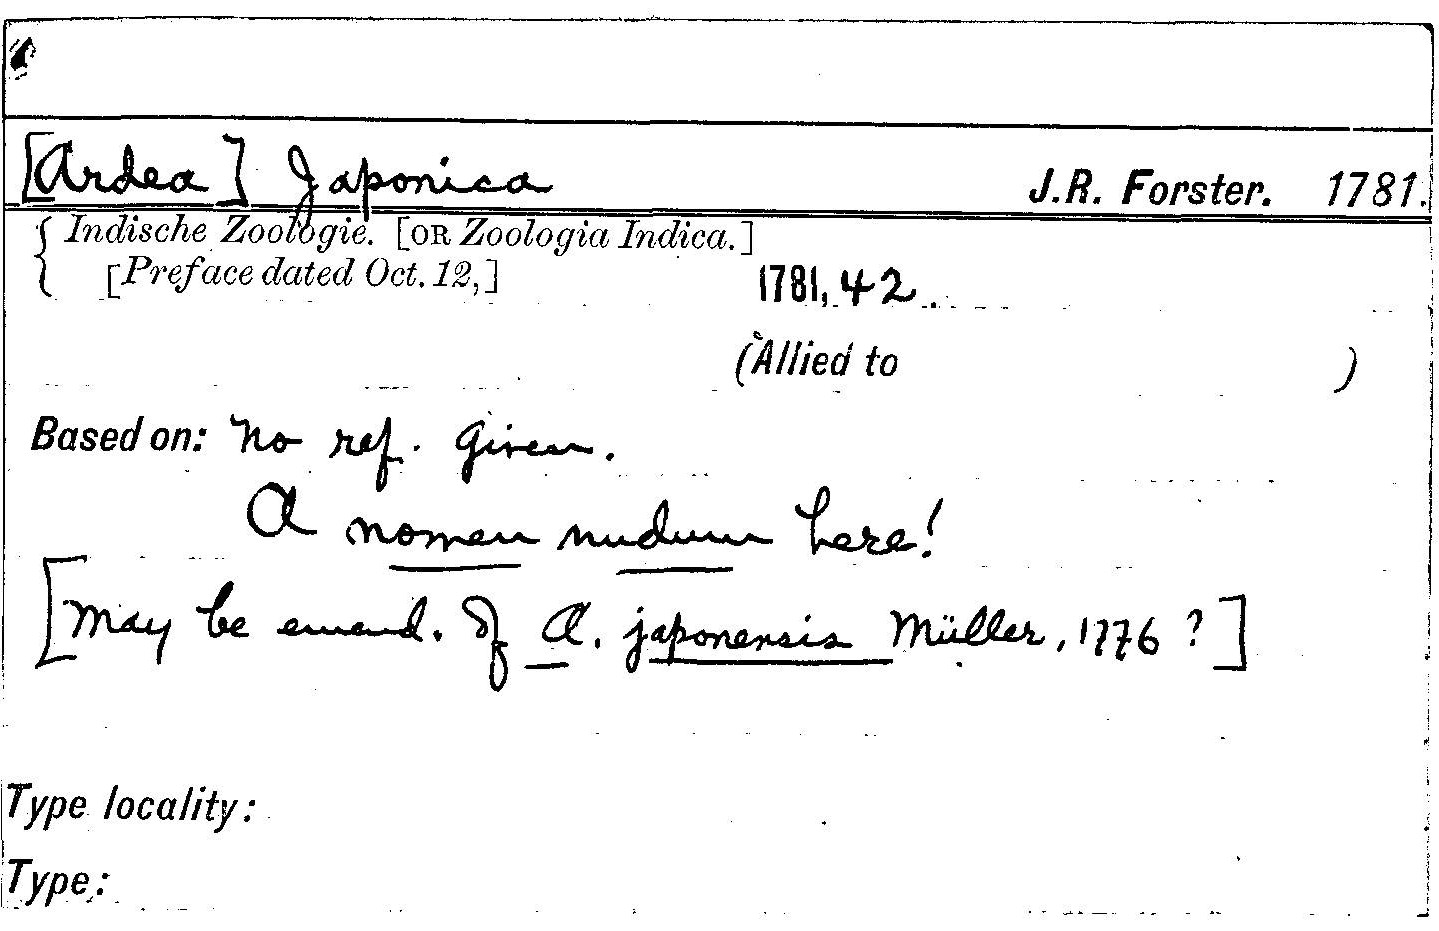 [Ardea] Japonica J.R. Forster. 1781.
Indische Zoologie. [OR Zoologia Indica.]
[Preface dated Oct. 12,] 1781, 42.
(Allied to )
Based on: No ref. given.
A nomen nudum here!
[May be emend. of A. japonensis Müller, 1776?]
Type locality:
Type: